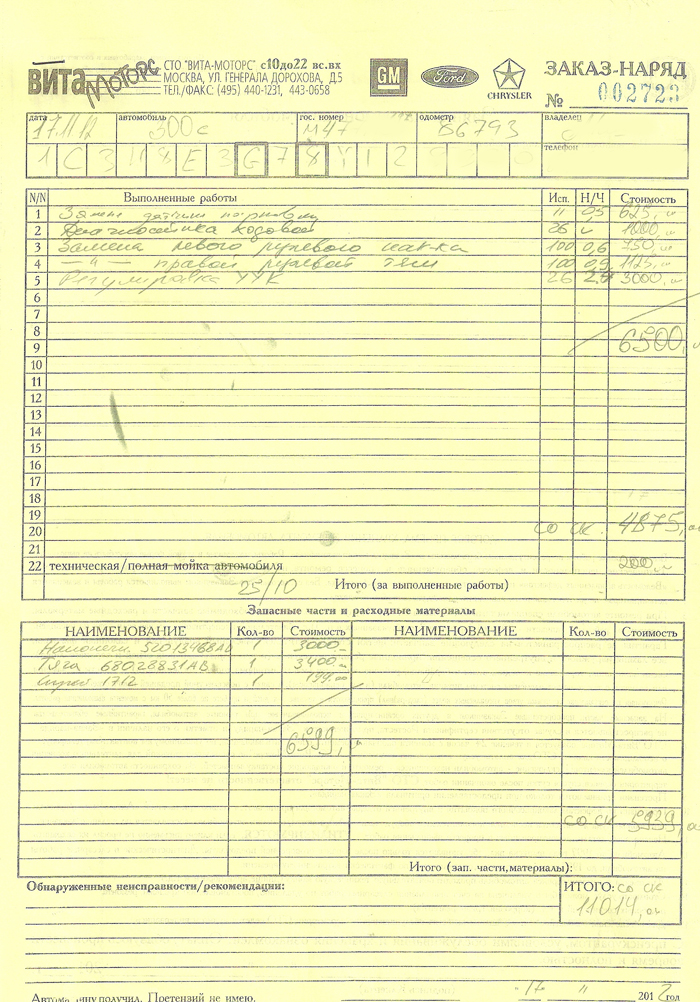 ВИТА МОТОРС
СТО "ВИТА-МОТОРС" с10до22 вс.вх
МОСКВА, УЛ. ГЕНЕРАЛА ДОРОХОВА, Д.5
ТЕЛ./ФАКС: (495) 440-1231, 443-0658
GM
Ford
CHRYSLER
ЗАКАЗ-НАРЯД
№ 002723
дата автомобиль гос. номер одометр владелец
17.11.12 300с М47 86793
телефон
1 C 3 8 E 3 G 7 8 Y 1 2
N/N Выполненные работы Исп. Н/Ч Стоимость
1 Замена датчика 11 0,5 625,
2 Диагностика ходовой 26 1000,
3 Замена левого рулевого нак-ка 100 0,6 750,
4 — " — правой рулевой тяги 100 0,9 1125,
5 Регулировка УУК 26 2,4 3000,
6
7
8
6500,
9
10
11
12
13
14
15
16
17
18
19
со ск. 4875,
20
21
22 техническая/полная мойка автомобиля 200,
25/10 Итого (за выполненные работы)
Запасные части и расходные материалы
НАИМЕНОВАНИЕ Кол-во Стоимость НАИМЕНОВАНИЕ Кол-во Стоимость
Наконечн. 52013468АВ 1 3000
Тяга 68028831АВ 1 3400
1712 1 199.00
6599,
со ск 5939,
Итого (зап. части,материалы):
Обнаруженные неисправности/рекомендации:
ИТОГО: со ск
11014,
Автомашину получил. Претензий не имею. "17 " 2012 год